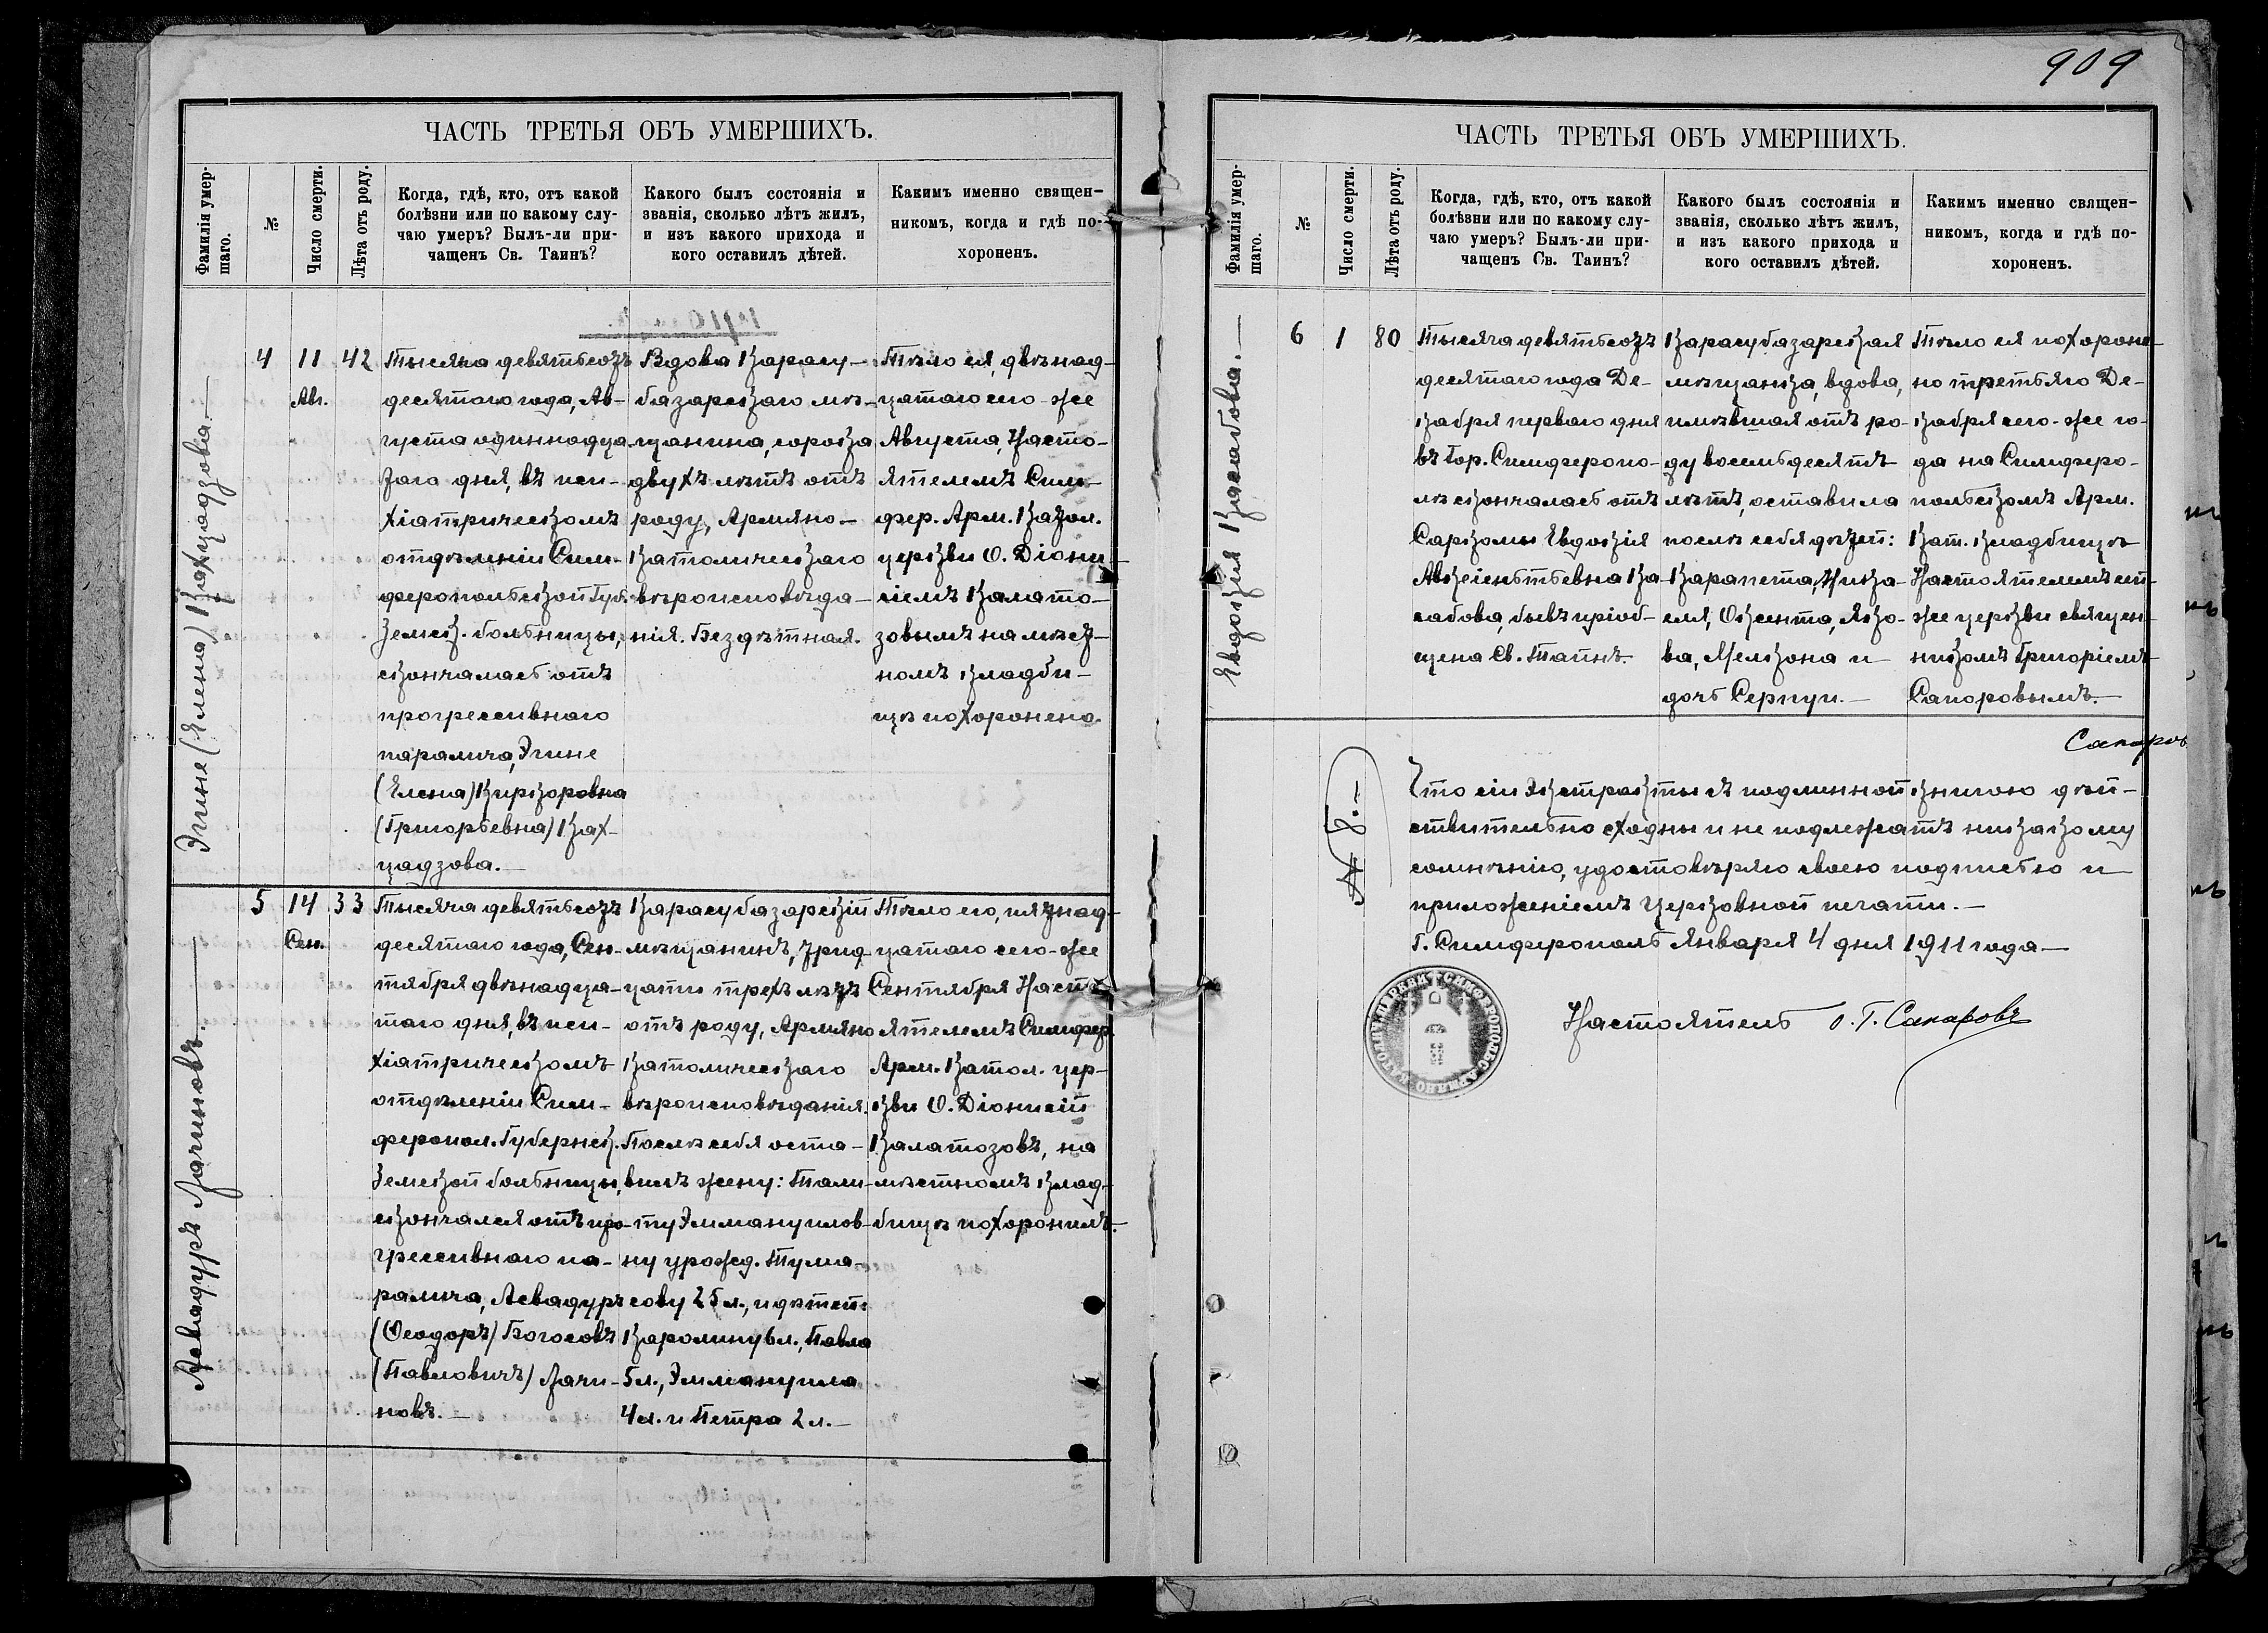 909
ЧАСТЬ ТРЕТЬЯ ОБЪ УМЕРШИХЪ.
Фамилія умер-
шаго.
№
Число смерти.
Лѣта отъ роду.
Когда, гдѣ, кто, отъ какой
болѣзни или по какому слу-
чаю умеръ? Былъ-ли при-
чащенъ Св. Таинъ?
Какого былъ состоянія и
званія, сколько лѣтъ жилъ,
и изъ какого прихода и
кого оставилъ дѣтей.
Какимъ именно священ-
никомъ, когда и гдѣ по-
хороненъ.
1910
Эгине (Елена) Кахцадзова.—
4
11
Авг.
42
Тысяча девятьсотъ
десятаго года, Ав-
густа одиннадца-
таго дня, въ пси-
хіатрическомъ
отдѣленіи Сим-
феропольской Губ.
Земск. больницы,
скончалась отъ
прогрессивнаго
паралича, Эгине
(Елена) Киркоровна
(Григорьевна) Ках-
цадзова.—
Вдова Карасу-
базарскаго мѣ-
щанина, сорока
двухъ лѣтъ отъ
роду, Армяно-
католическаго
вѣроисповѣда-
нія. Бездѣтная.
Тѣло ея, двѣнад-
цатаго сего-же
Августа, Насто-
ятелемъ Сим-
фер. Арм. Катол.
церкви О. Діони-
сіемъ Калато-
зовымъ на мѣст-
номъ кладби-
щѣ похоронено.
Асвадуръ Лачиновъ.—
5
14
Сен.
33
Тысяча девятьсотъ
десятаго года, Сен-
тября двѣнадца-
таго дня, въ пси-
хіатрическомъ
отдѣленіи Сим-
феропол. Губернск.
Земской больницы,
скончался отъ про-
грессивнаго па-
ралича, Асвадуръ
(Ѳеодоръ) Богосовъ
(Павловичъ) Лачи-
новъ.—
Карасубазарскій
мѣщанинъ, трид-
цати трехъ лѣтъ
отъ роду, Армяно
католическаго
вѣроисповѣданія.
Послѣ себя оста-
вилъ жену:
ту Эммануилов-
ну урожд. Тума-
сову 25 л., и дѣтей:
Каролину 6 л., Павла
5 л., Эммануила
4 л. и Петра 2 л.—
Тѣло его, пятнад-
цатаго сего-же
Сентября Насто-
ятелемъ Симфер.
Арм. Катол. цер-
кви О. Діонисій
Калатозовъ, на
мѣстномъ клад-
бищѣ похоронилъ.
ЧАСТЬ ТРЕТЬЯ ОБЪ УМЕРШИХЪ.
Фамилія умер-
шаго.
№
Число смерти.
Лѣта отъ роду.
Когда, гдѣ, кто, отъ какой
болѣзни или по какому слу-
чаю умеръ? Былъ-ли при-
чащенъ Св. Таинъ?
Какого былъ состоянія и
званія, сколько лѣтъ жилъ,
и изъ какого прихода и
кого оставилъ дѣтей.
Какимъ именно священ-
никомъ, когда и гдѣ по-
хороненъ.
Евдокія
6
1
80
Тысяча девятьсотъ
десятаго года Де-
кабря перваго дня
въ Гор. Симферопо-
лѣ скончалась отъ
Саркомы Евдокія
бывъ пріоб-
щена Св. Таинъ.
Карасубазарская
мѣщанка, вдова,
имѣвшая отъ ро-
ду восемьдесятъ
лѣтъ, оставила
послѣ себя дѣтей:
Карапета, Мика-
еля, Оксента, Яко-
ва, Мелкона и
дочь Серпуи.—
Тѣло ея похороне-
но третьяго Де-
кабря сего-же го-
да на Симферо-
польскомъ Арм.
Кат. кладбищѣ
Настоятелемъ сей-
же церкви священ-
никомъ Григоріемъ
Сапоровымъ.—
Сапаровъ
№ 8.—
Что сіи экстракты съ подлинной книгою дѣй-
ствительно сходны и не подлежатъ никакому
сомнѣнію, удостовѣряю своею подписью и
приложеніемъ Церковной печати.—
г. Симферополь Января 4 дня 1911 года—
Настоятель о. Г. Сапаровъ